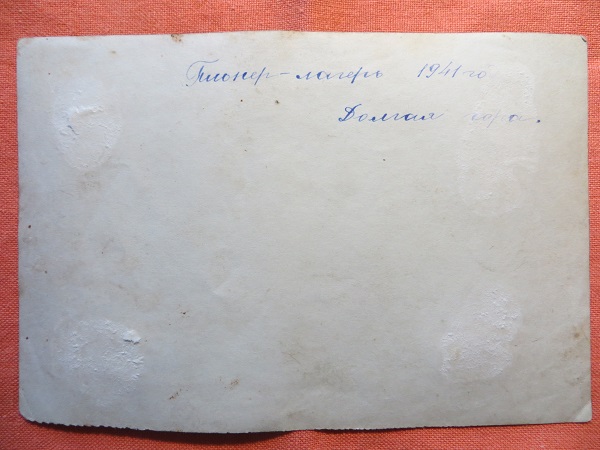 Пионер-лагерь 1941 го
Долгая гора.